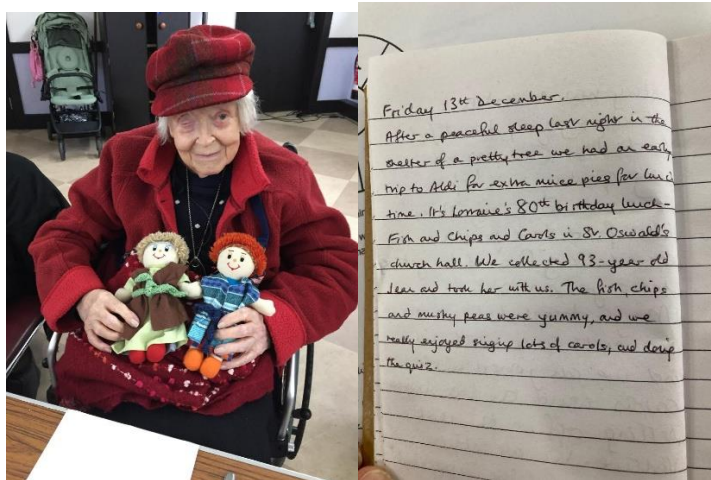 Friday 13th December.
After a peaceful sleep last night in the
shelter of a pretty tree we had an early
trip to Aldi for extra mince pies for lunch
time. It's Lorraine's 80th birthday lunch –
Fish and Chips and Carols in St. Oswald's
church hall. We collected 93-year old
Jean and took her with us. The fish, chips
and mushy peas were yummy, and we
really enjoyed singing lots of carols, and doing
the quiz.